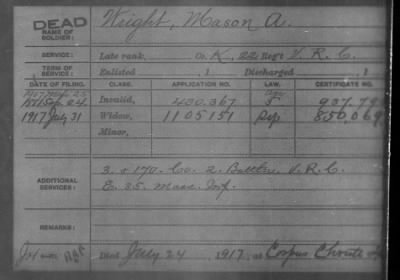 DEAD
NAME OF SOLDIER:
Wright, Mason A.
SERVICE:
Late rank, Co. K, 22 Reg't V. R. C.
TERM OF SERVICE:
Enlisted , 1 Discharged , 1
DATE OF FILING. CLASS. APPLICATION NO. LAW. CERTIFICATE NO.
Invalid, 430.367
1917 July 31 Widow, 1105151 850,069
Minor,
ADDITIONAL SERVICES:
3. & 170. Co. 2. Battn. V. R. C.
E. 35. Mass. Inf.
REMARKS:
Died July 24 1917, at Corpus Christi